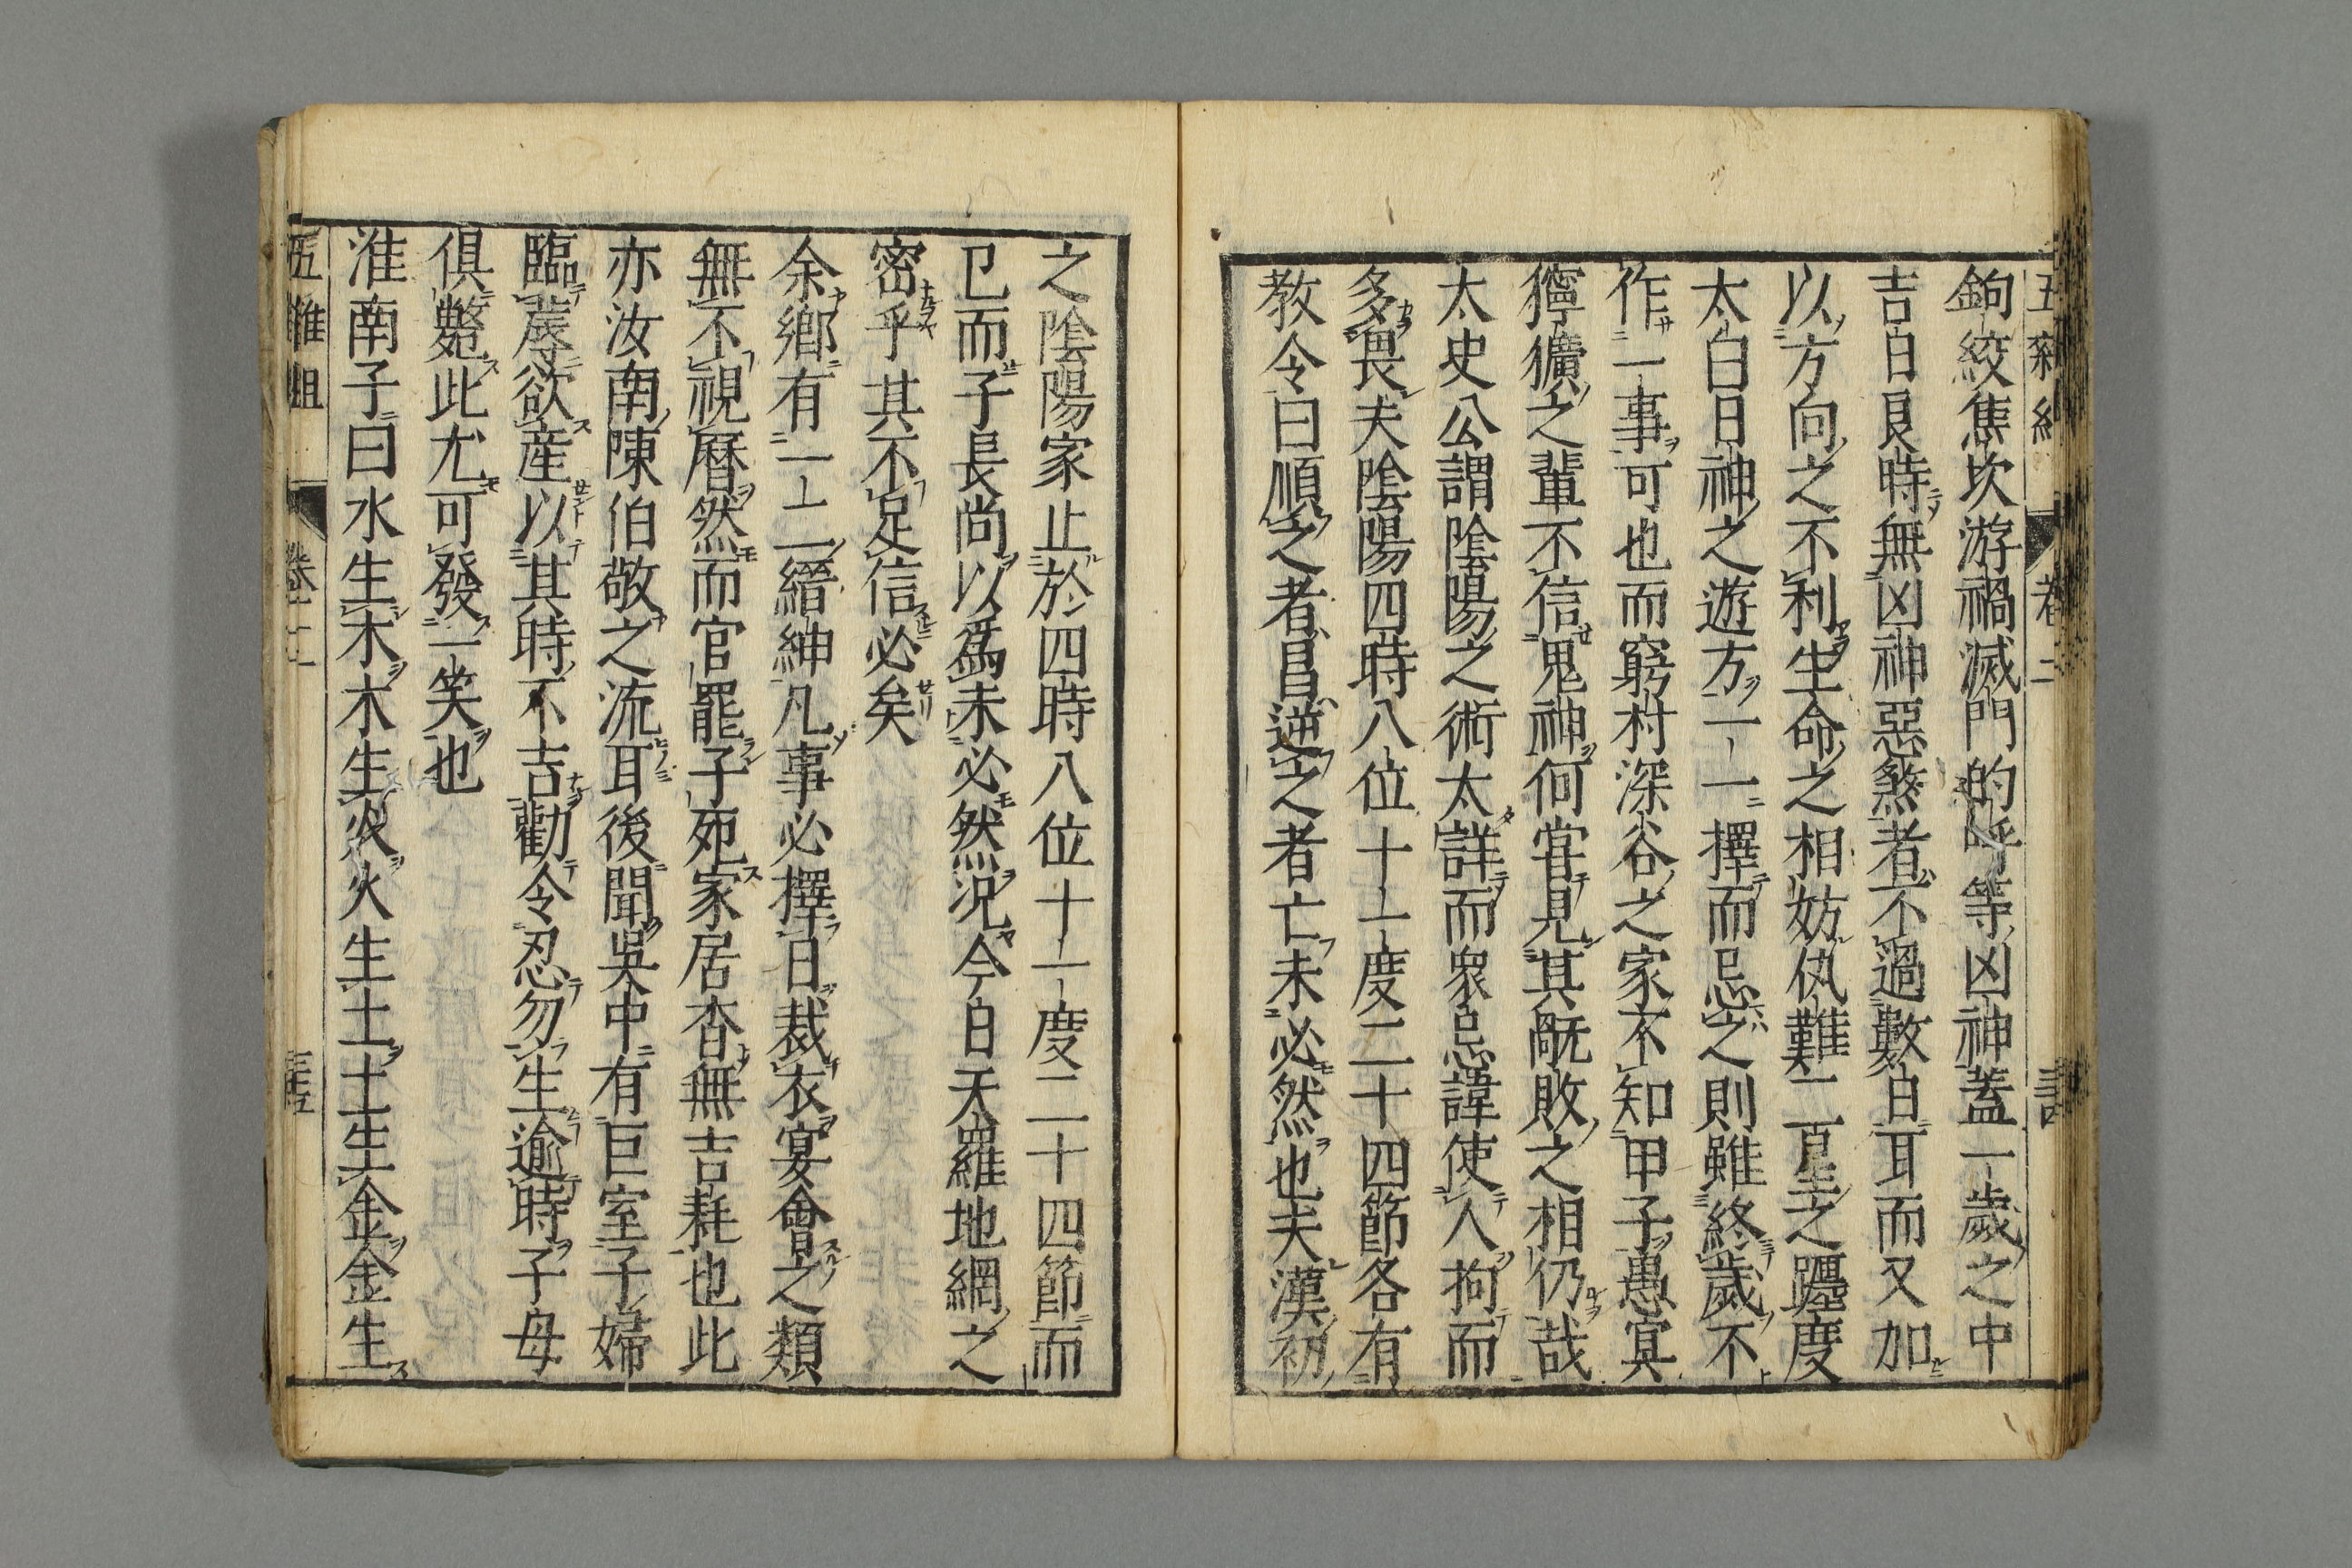 五雜組 卷二
鉤絞焦坎游禍滅門的呼等凶神蓋一歲之中
吉日良時無凶神惡煞者不過數日耳而又加
以方向之不利生命之相妨伋難二星之躔度
太白日神之遊方一一擇而忌之則雖終歲不
作一事可也而窮村深谷之家不知甲子愚冥
獰獷之輩不信鬼神何甞見其敗之相仍哉
太史公謂陰陽之術太詳而衆忌諱使人拘而
多畏夫陰陽四時八位十二度二十四節各有
教令曰順之者昌逆之者亡未必然也夫漢初
之陰陽家止於四時八位十二度二十四節而
已而子長尚以爲未必然况今日天羅地網之
密乎其不足信必矣
余鄉有一二縉紳凡事必擇日裁衣宴會之類
無不視曆然而官罷子死家居杳無吉耗也此
亦汝南陳伯敬之流耳後聞吳中有巨室子婦
臨蓐欲産以其時不吉勸令忍勿生逾時子母
俱斃此尤可發一笑也
淮南子曰水生木木生火火生土土生金金生
五雜組 卷二